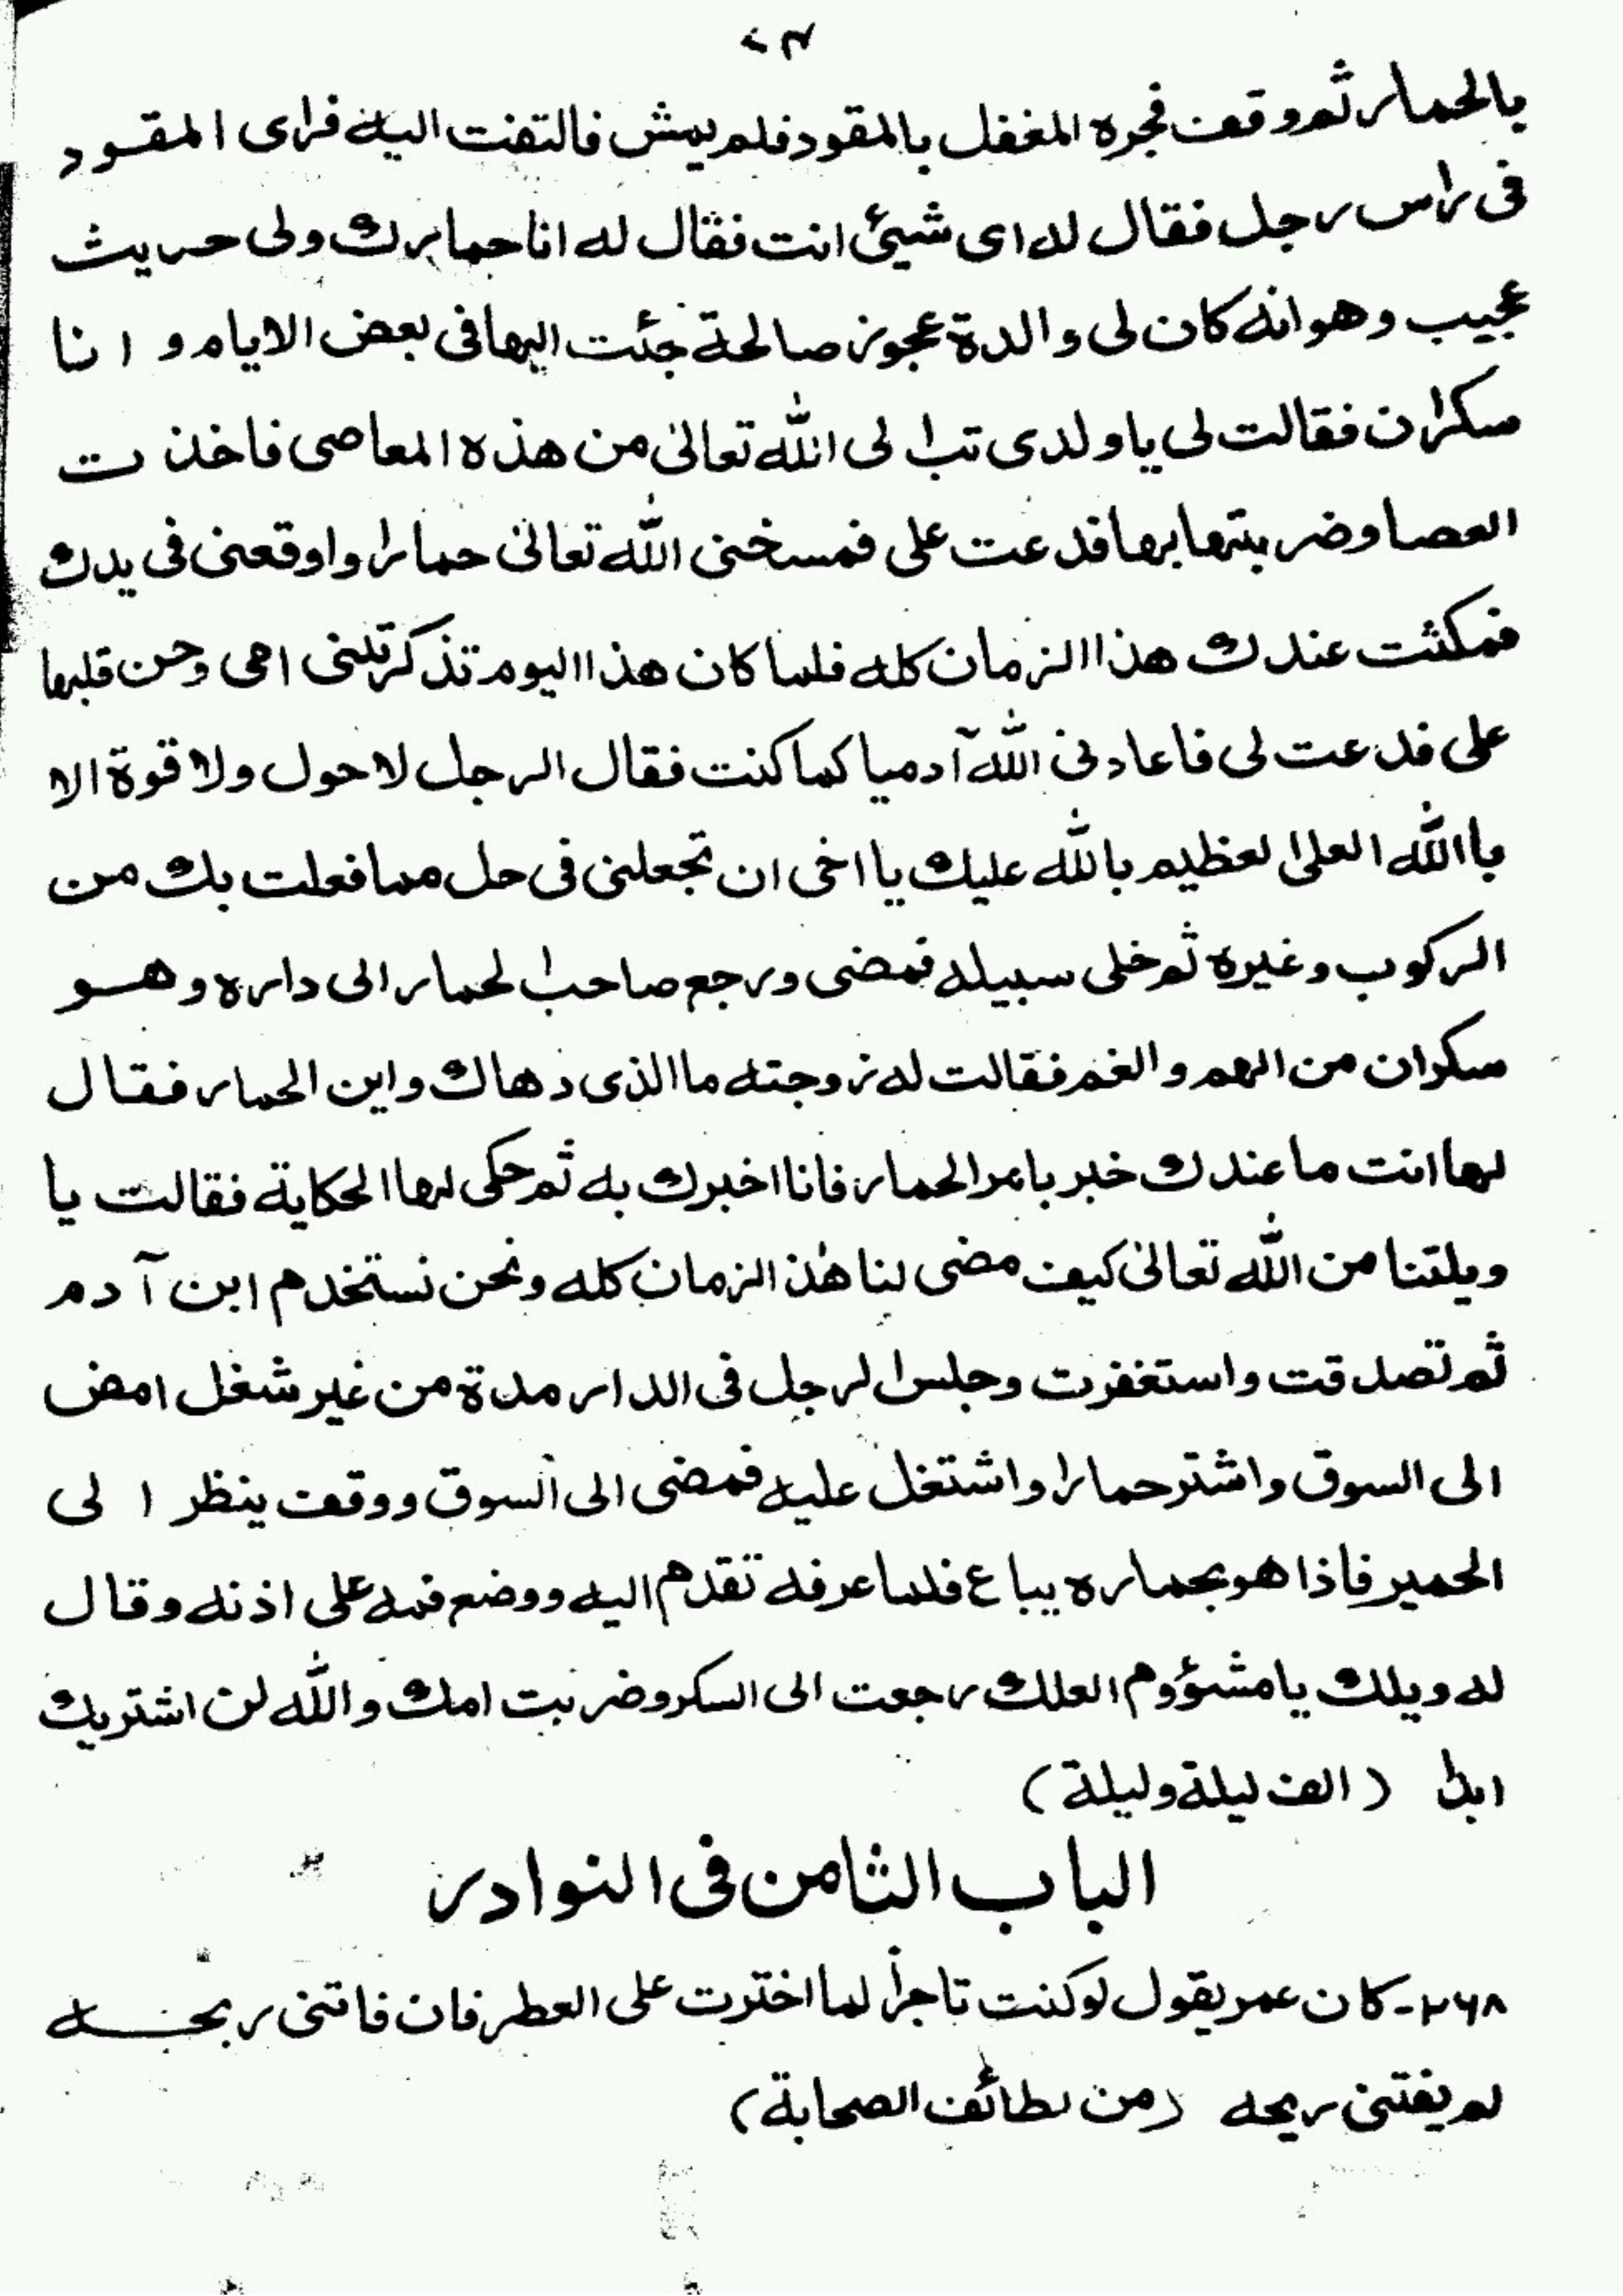 بالحمار ثم وقف فجره المغفل بالمقود فلم يمش فالتفت اليه فراى المقود
فى راس رجل فقال له اى شيئ انت فقال له انا حمارك ولى حديث
عجيب وهو انه كان لى والدة عجوز صالحة جئت اليها فى بعض الايام و انا
سكران فقالت لى يا ولدى تب الى الله تعالىٰ من هذه المعاصى فاخذت
العصا وضربتها بها فدعت على فمسخنى الله تعالىٰ حمارا واوقعنى فى يدك
فمكثت عندك هذا الزمان كله فلما كان هذا اليوم تذكرتنى امى وحن قلبها
على فدعت لى فاعادنى الله آدميا كما كنت فقال الرجل لا حول ولا قوة الا
باالله العلى العظيم بالله عليك يا اخى ان تجعلنى فى حل مما فعلت بك من
الركوب وغيره ثم خلى سبيله فمضى ورجع صاحب الحمار الى داره وهو
سكران من الهم والغم فقالت له زوجته ما الذى دهاك واين الحمار فقال
لها انت ما عندك خبر بامر الحمار فانا اخبرك به ثم حكى لها الحكاية فقالت يا
ويلتنا من الله تعالىٰ كيف مضى لنا هٰذ الزمان كله ونحن نستخدم ابن آدم
ثم تصدقت واستغفرت وجلس الرجل فى الدار مدة من غير شغل امض
الى السوق واشتر حمارا واشتغل عليه فمضى الى السوق ووقف ينظر الى
الحمير فاذا هو بحماره يباع فلما عرفه تقدم اليه ووضع فمه على اذنه وقال
له ويلك يا مشؤوم العلك رجعت الى السكر وضربت امك والله لن اشتريك
ابدا (الف ليلة وليلة)
الباب الثامن فى النوادر
۲۶۸- كان عمر يقول لو كنت تاجراً لما اخترت على العطر فان فاتنى ربحه
لم يفتنى ريحه (من لطائف الصحابة)